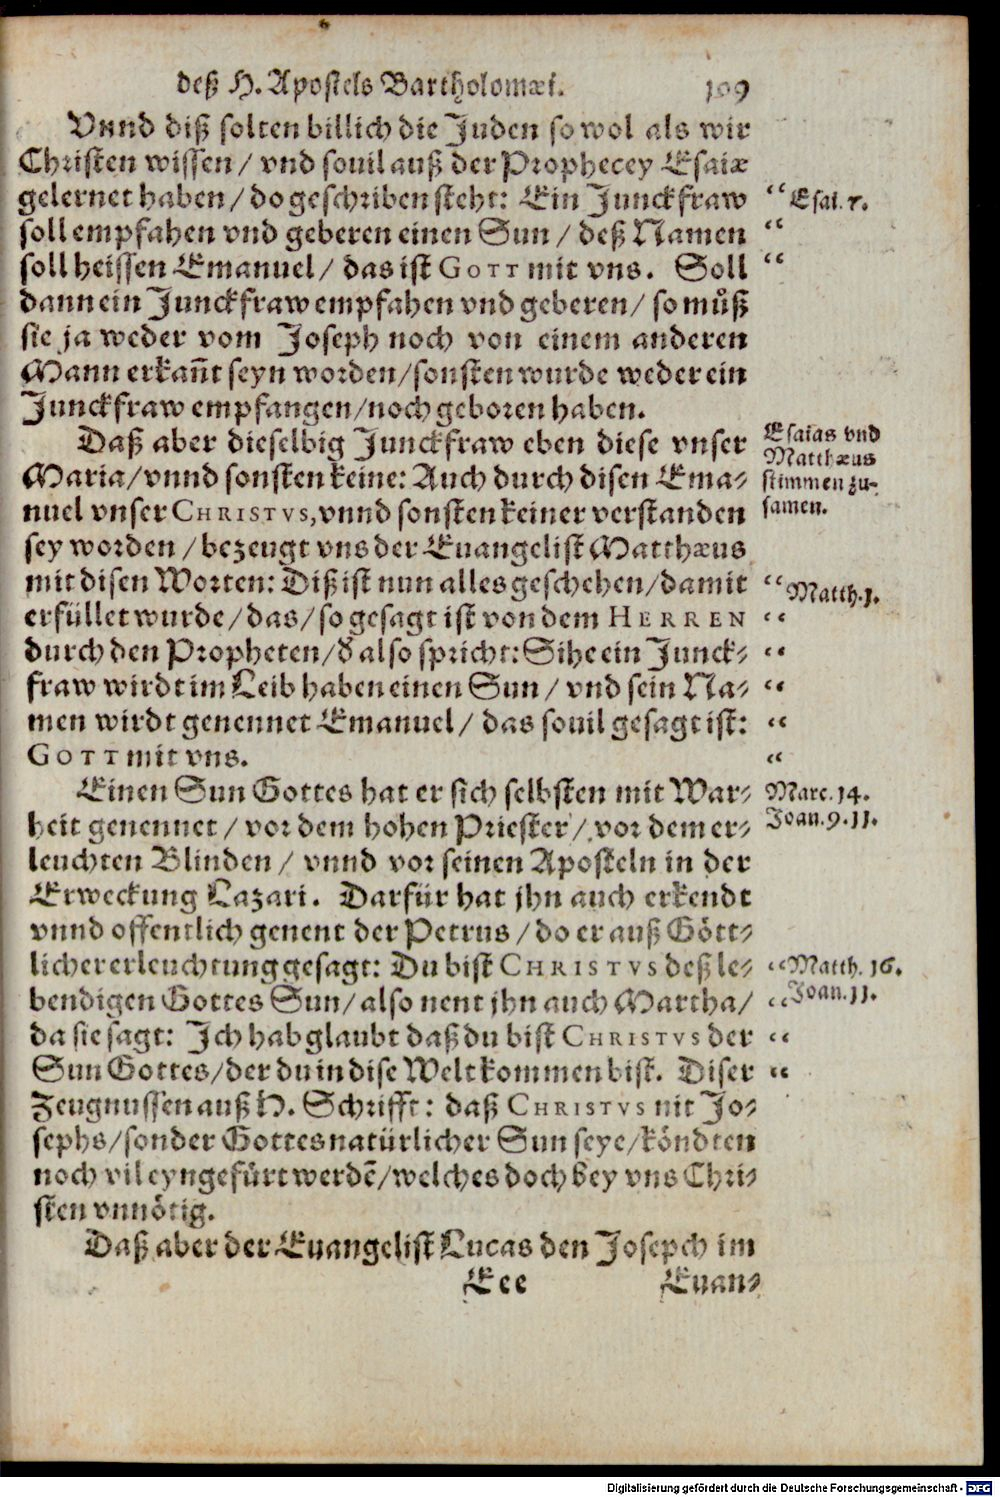 deß H. Apostels Bartholomæi. 199
Vnnd diß solten billich die Juden so wol als wir
Christen wissen / vnd souil auß der Prophecey Esaiæ
gelernet haben / do geschriben steht: Ein Junckfraw
“ Esai. 7.
soll empfahen vnd geberen einen Sun / deß Namen
“
soll heissen Emanuel / das ist GOTT mit vns. Soll
“
dann ein Junckfraw empfahen vnd geberen / so můß
sie ja weder vom Joseph noch von einem anderen
Mann erkañt seyn worden / sonsten wurde weder ein
Junckfraw empfangen / noch geboren haben.
Daß aber dieselbig Junckfraw eben diese vnser
Esaias vnd
Matthæus
stimmen zu-
samen.
Maria / vnnd sonsten keine: Auch durch disen Ema-
nuel vnser CHRISTVS, vnnd sonsten keiner verstanden
sey worden / bezeugt vns der Euangelist Matthæus
mit disen Worten: Diß ist nun alles geschehen / damit
“ Matth. 1.
erfüllet wurde / das / so gesagt ist von dem HERREN
“
durch den Propheten / d' also spricht: Sihe ein Junck-
“
fraw wirdt im Leib haben einen Sun / vnd sein Na-
“
men wirdt genennet Emanuel / das souil gesagt ist:
“
GOTT mit vns.
“
Einen Sun Gottes hat er sich selbsten mit War-
Marc. 14.
heit genennet / vor dem hohen Priester / vor dem er-
Joan. 9. 11.
leuchten Blinden / vnnd vor seinen Aposteln in der
Erweckung Lazari. Darfür hat jhn auch erkendt
vnnd offentlich genent der Petrus / do er auß Gött-
licher erleuchtung gesagt: Du bist CHRISTVS deß le-
“ Matth. 16.
bendigen Gottes Sun / also nent jhn auch Martha /
“ Joan. 11.
da sie sagt: Ich hab glaubt daß du bist CHRISTVS der
“
Sun Gottes / der du in dise Welt kommen bist. Diser
“
Zeugnussen auß H. Schrifft: daß CHRISTVS nit Jo-
sephs / sonder Gottes natürlicher Sun seye / köndten
noch vil eyngefürt werdẽ / welches doch bey vns Chri-
sten vnnötig.
Daß aber der Euangelist Lucas den Josepch im
Eee Euan-
Digitalisierung gefördert durch die Deutsche Forschungsgemeinschaft - DFG